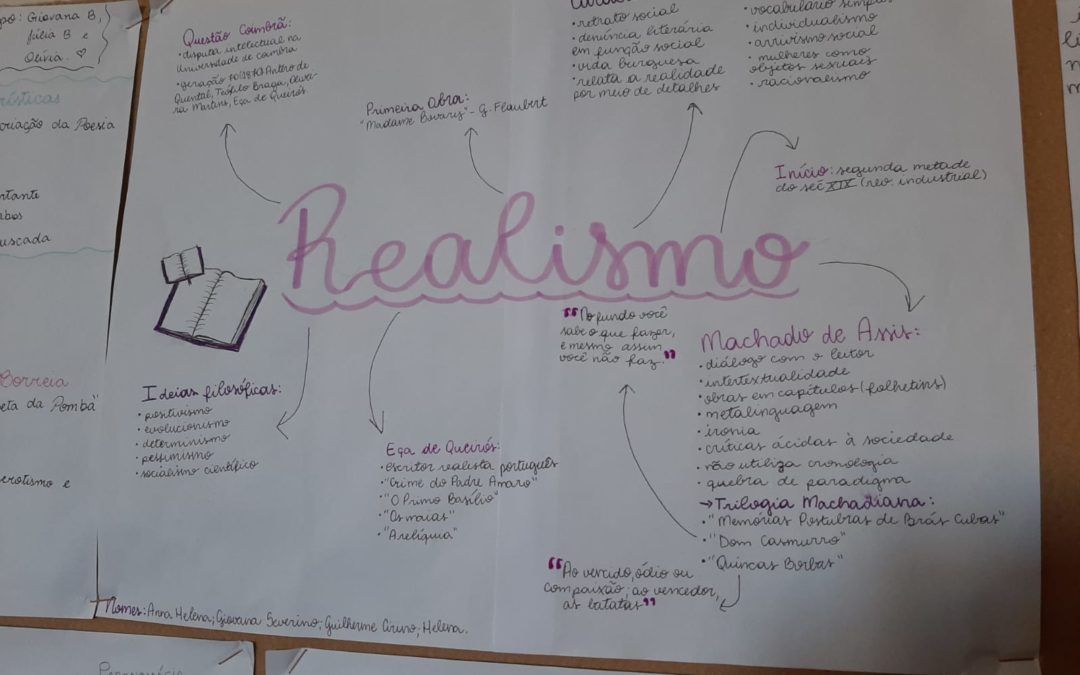 po: Giovana B,
Júlia B e
Olívia. ♡
rísticas
criação da Poesia
rtante
abos
uscada
Correia
eta da Pomba"
erotismo e
Questão Coimbrã:
• disputa intelectual na
Universidade de Coimbra
• geração 70 (1870) Antero de
Quental, Teófilo Braga, Olivei-
ra Martins, Eça de Queirós.
Primeira Obra:
"Madame Bovary" - G. Flaubert
• retrato social
• denúncia literária
em função social
• vida burguesa
• relata a realidade
por meio de detalhes
• vocabulário simples
• individualismo
• arrivismo social
• mulheres como
objetos sexuais
• racionalismo
Início: segunda metade
do séc XIX (rev. industrial)
Realismo
Ideias filosóficas:
• positivismo
• evolucionismo
• determinismo
• pessimismo
• socialismo científico
Eça de Queirós:
• escritor realista português
• "Crime do Padre Amaro"
• "O Primo Basílio"
• "Os maias"
• "A relíquia"
"No fundo você
sabe o que fazer,
e mesmo assim
você não faz."
Machado de Assis:
• diálogo com o leitor
• intertextualidade
• obras em capítulos (folhetins)
• metalinguagem
• ironia
• críticas ácidas à sociedade
• não utiliza cronologia
• quebra de paradigma
→ Trilogia Machadiana:
• "Memórias Postubras de Brás Cubas"
• "Dom Casmurro"
• "Quincas Borbas"
"Ao vencido, ódio ou
compaixão; ao vencedor,
as batatas"
Nomes: Anna Helena; Giovana Severino; Guilherme Cruno; Helena.